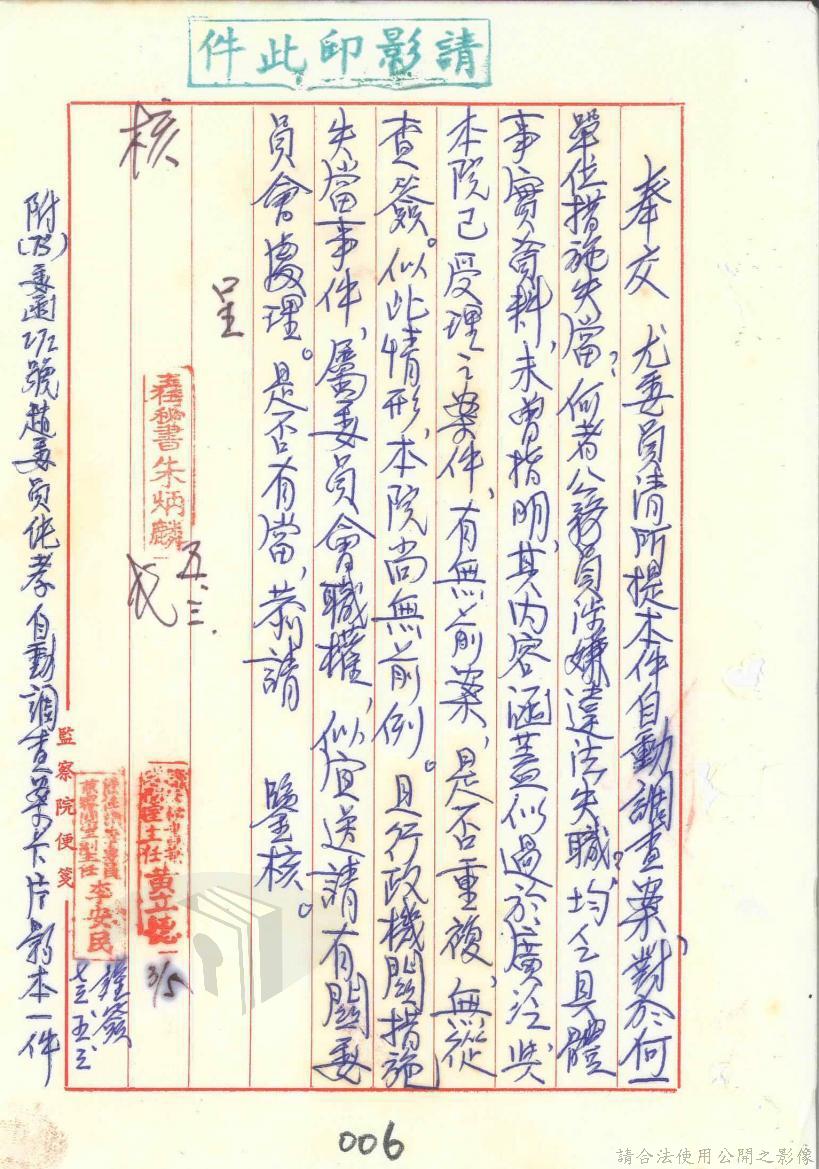 請影印此件
奉交　尤委員清所提本件自動調查案，對於何一
單位措施失當？何者公務員涉嫌違法失職？均乏具體
事實資料，未曾指明，其內容涵蓋似過於廣泛與
本院已受理之案件，有無前案，是否重複，無從
查簽。似此情形，本院尚無前例。且行政機關措施
失當事件，屬委員會職權，似宜送請有關委
員會處理。是否有當，恭請　鑒核。
呈
核
秘書朱炳麟
五.三.
主任黃立
3/5
李安民
謹簽
附(73)委函 號趙委員純孝自動調查案卡片影本一件
監察院便箋
006
請合法使用公開之影像